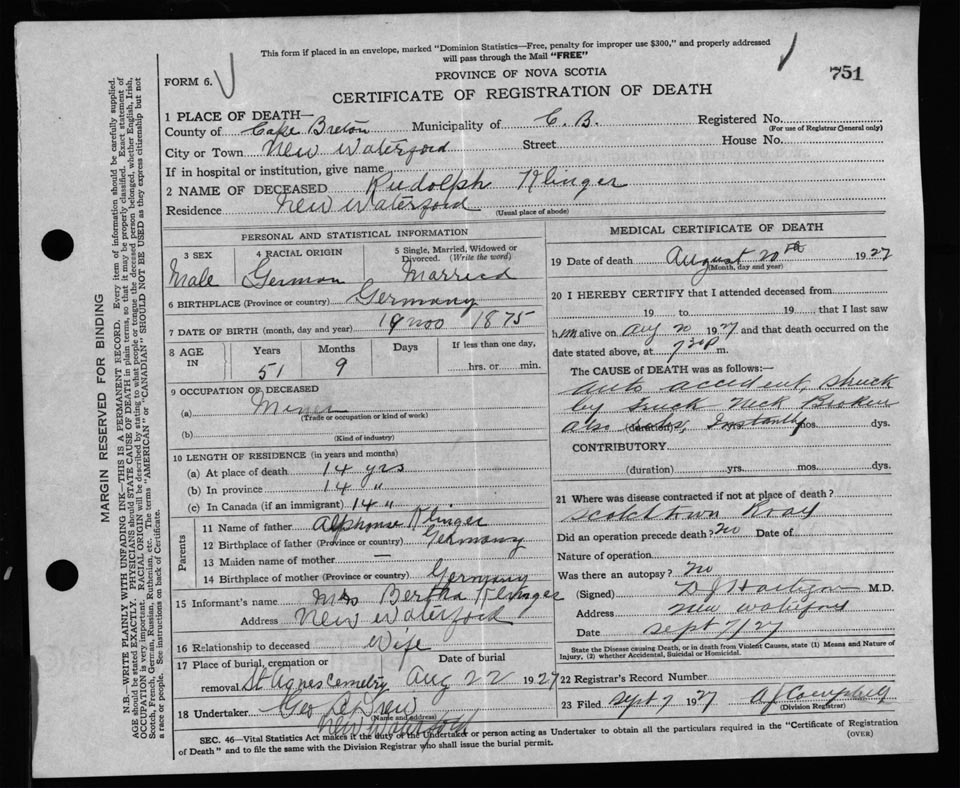 This form if placed in an envelope, marked "Dominion Statistics—Free, penalty for improper use $300," and properly addressed
will pass through the Mail "FREE"
FORM 6.
PROVINCE OF NOVA SCOTIA
751
CERTIFICATE OF REGISTRATION OF DEATH
1 PLACE OF DEATH—
County of Cape Breton Municipality of C. B. Registered No.
(For use of Registrar General only)
City or Town New Waterford Street House No.
If in hospital or institution, give name
2 NAME OF DECEASED Rudolph Klinger
Residence New Waterford
(Usual place of abode)
PERSONAL AND STATISTICAL INFORMATION
3 SEX Male
4 RACIAL ORIGIN German
5 Single, Married, Widowed or
Divorced. (Write the word)
Married
6 BIRTHPLACE (Province or country) Germany
7 DATE OF BIRTH (month, day and year) 19 Nov 1875
8 AGE IN Years 51 Months 9 Days If less than one day,
hrs. or min.
9 OCCUPATION OF DECEASED
(a) Miner
(Trade or occupation or kind of work)
(b)
(Kind of industry)
10 LENGTH OF RESIDENCE (in years and months)
(a) At place of death 14 yrs
(b) In province 14 "
(c) In Canada (if an immigrant) 14 "
Parents
11 Name of father Alphonse Klinger
12 Birthplace of father (Province or country) Germany
13 Maiden name of mother —
14 Birthplace of mother (Province or country) Germany
15 Informant's name Mrs Bertha Klinger
Address New Waterford
16 Relationship to deceased Wife
17 Place of burial, cremation or Date of burial
removal St Agnes Cemetry Aug 22 1927
18 Undertaker Geo
(Name and address)
New Waterford
MEDICAL CERTIFICATE OF DEATH
19 Date of death August 20th 1927
(Month, day and year)
20 I HEREBY CERTIFY that I attended deceased from
19 to 19 , that I last saw
him alive on Aug 20 1927 and that death occurred on the
date stated above, at 730 P m.
The CAUSE of DEATH was as follows:—
Auto accident struck
by Truck Neck Broken
Also Instantly mos. dys.
CONTRIBUTORY
(duration) yrs. mos. dys.
21 Where was disease contracted if not at place of death?
Scotchtown Road
Did an operation precede death? No Date of
Nature of operation
Was there an autopsy? No
(Signed) D J Hartigan M.D.
Address New Waterford
Date Sept 7/27
State the Disease causing Death, or in death from Violent Causes, state (1) Means and Nature of
Injury, (2) whether Accidental, Suicidal or Homicidal.
22 Registrar's Record Number
23 Filed Sept 7 1927 A J Campbell
(Division Registrar)
SEC. 46—Vital Statistics Act makes it the duty of the Undertaker or person acting as Undertaker to obtain all the particulars required in the "Certificate of Registration
of Death" and to file the same with the Division Registrar who shall issue the burial permit.
(OVER)
MARGIN RESERVED FOR BINDING
N.B.—WRITE PLAINLY WITH UNFADING INK—THIS IS A PERMANENT RECORD. Every item of information should be carefully supplied.
AGE should be stated EXACTLY. PHYSICIANS should STATE CAUSE OF DEATH in plain terms, so that it may be properly classified. Exact statement of
OCCUPATION is very important. RACIAL ORIGIN will be described by stating to what people or tongue the deceased person belonged, whether English, Irish,
Scotch, French, German, Russian, Ruthenian, etc. The terms "AMERICAN" or "CANADIAN" SHOULD NOT BE USED as they express citizenship but not
a race or people. See instructions on back of Certificate.